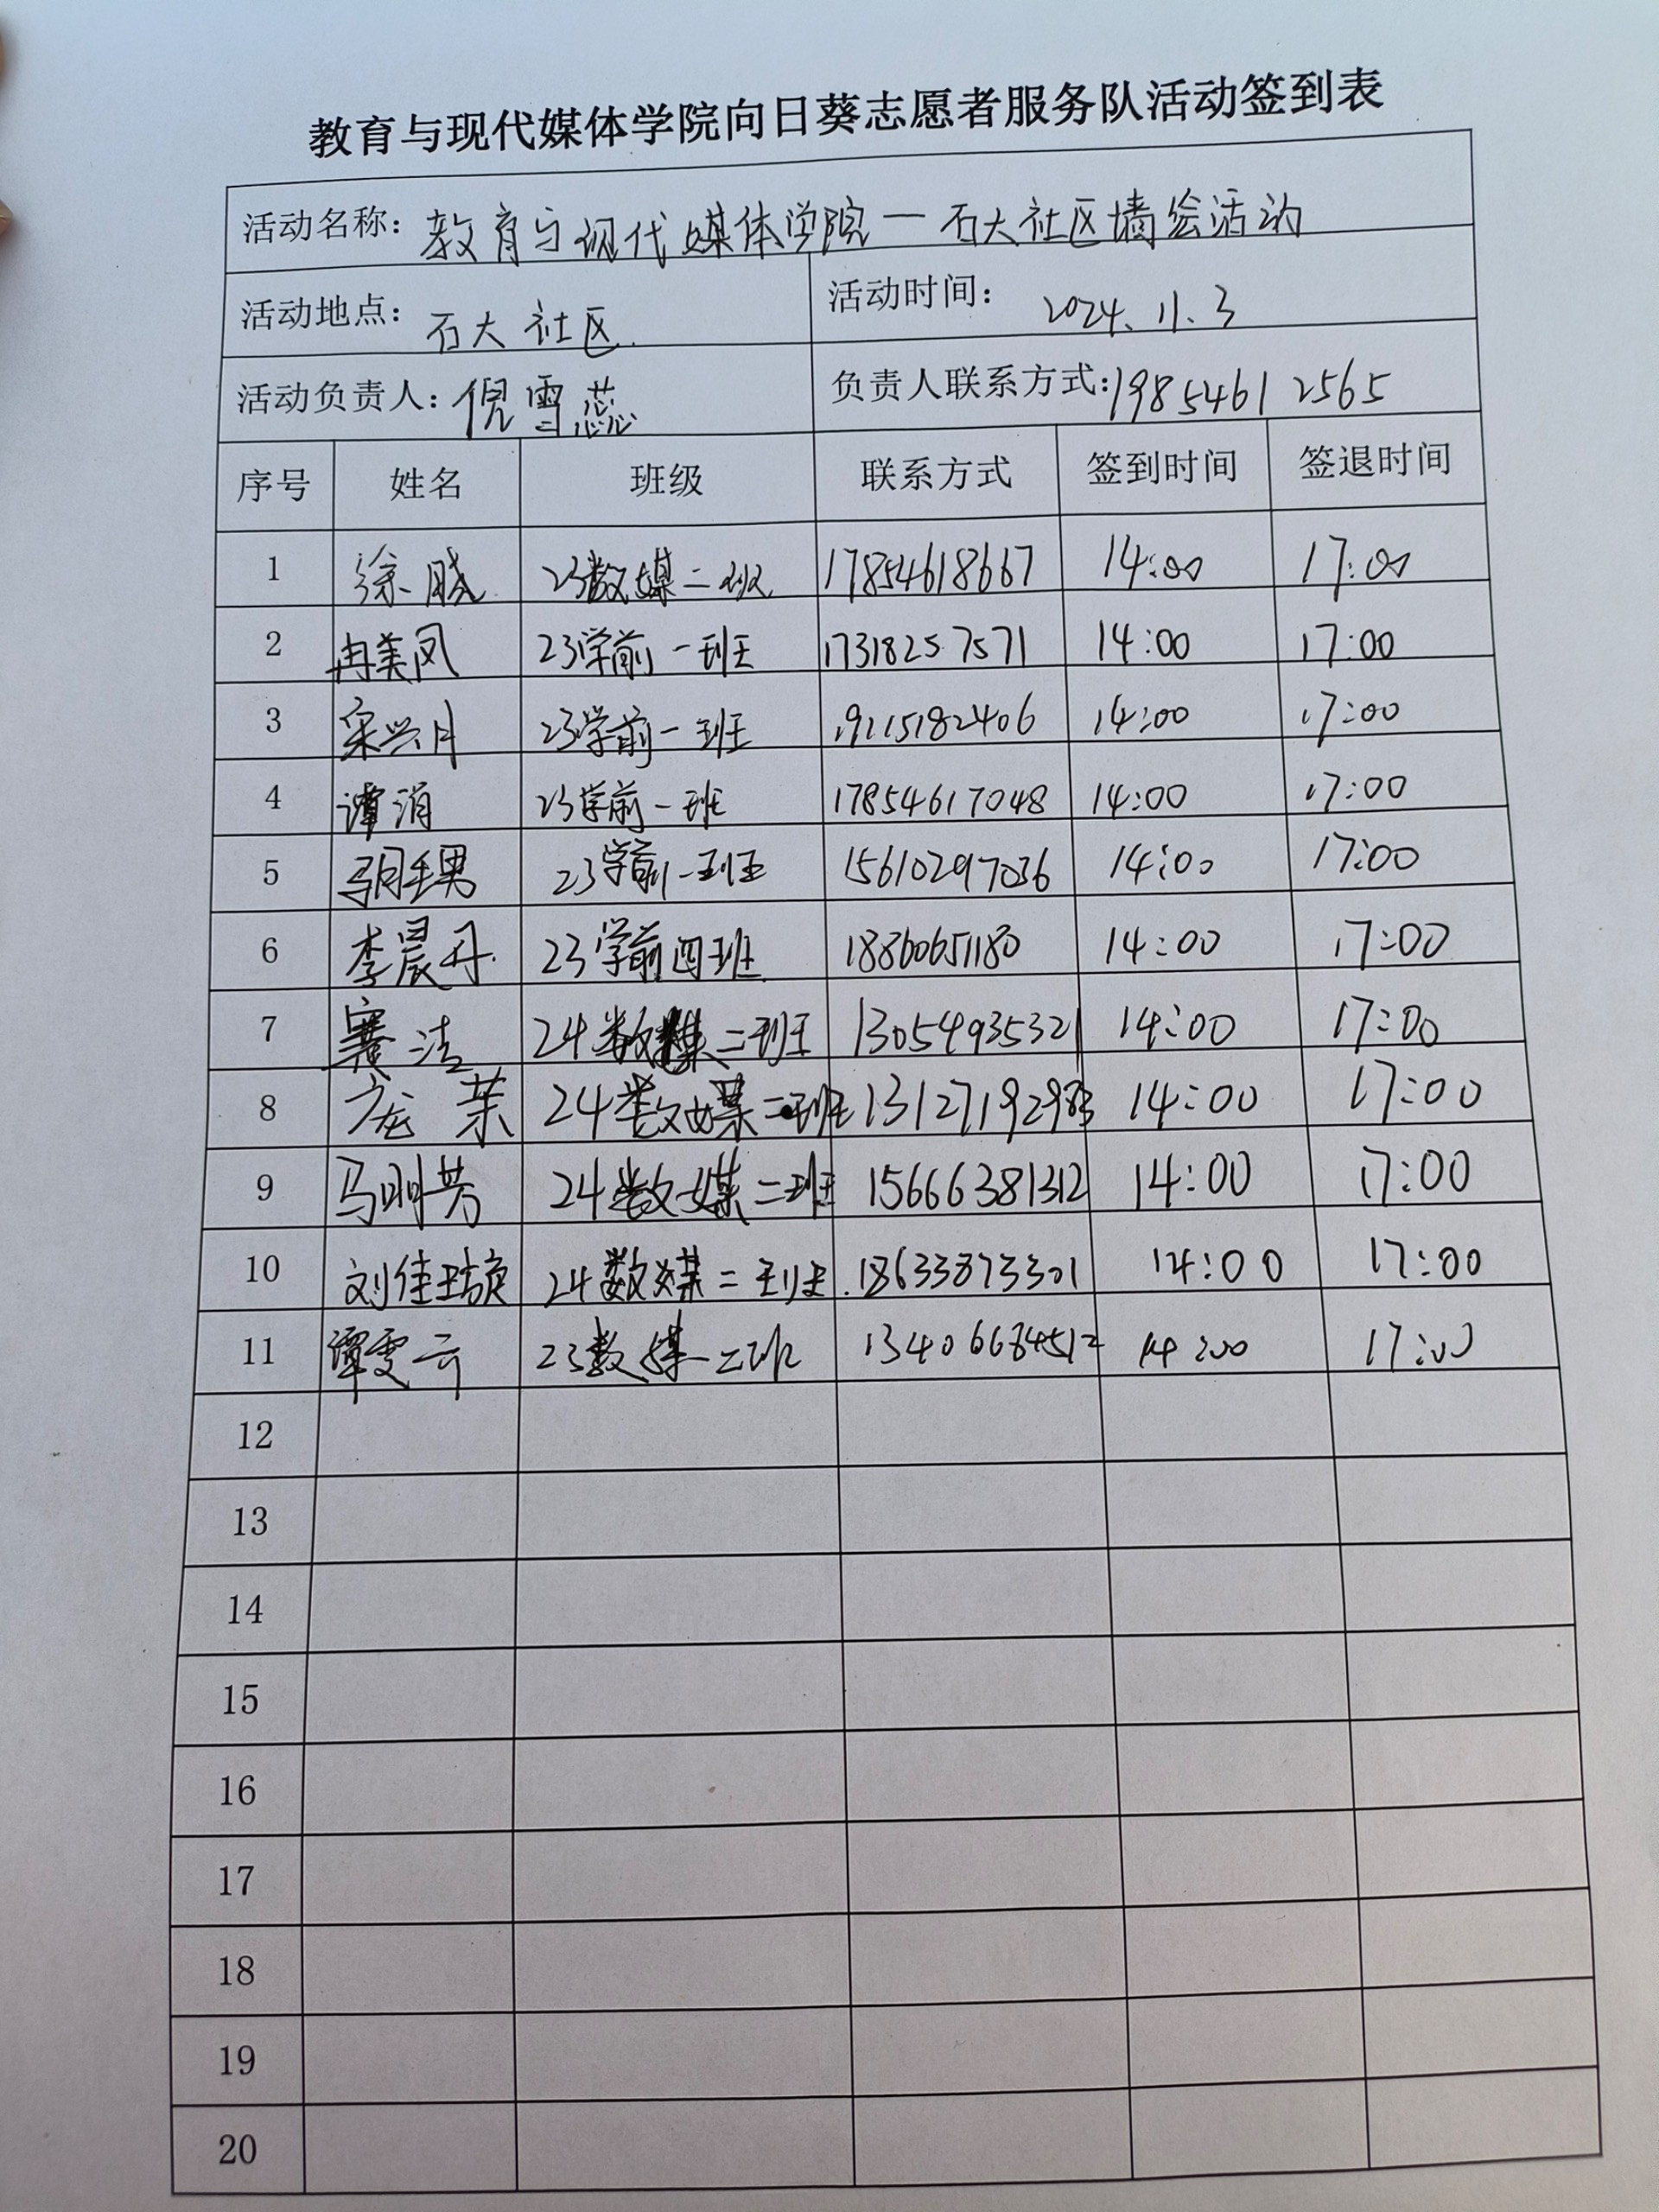 教育与现代媒体学院向日葵志愿者服务队活动签到表
活动名称: 教育与现代媒体学院一石大社区墙绘活动
活动地点: 石大社区 活动时间: 2024.11.3
活动负责人: 倪雪蕊 负责人联系方式: 19854612565
序号 姓名 班级 联系方式 签到时间 签退时间
1 徐晓 23数媒二班 17854618667 14:00 17:00
2 冉美凤 23学前一班 17318257571 14:00 17:00
3 宋兴月 23学前一班 19115182406 14:00 17:00
4 谭涓 23学前一班 17854617048 14:00 17:00
5 23学前一班 15610297036 14:00 17:00
6 李晨丹 23学前四班 18860651180 14:00 17:00
7 洁 24数媒二班 13054935321 14:00 17:00
8 庞茉 24数媒二班 14:00 17:00
9 马明芳 24数媒二班 15666381312 14:00 17:00
10 刘佳璇 24数媒二班 18633873301 14:00 17:00
11 谭雯云 23数媒二班 14:00 17:00
12
13
14
15
16
17
18
19
20